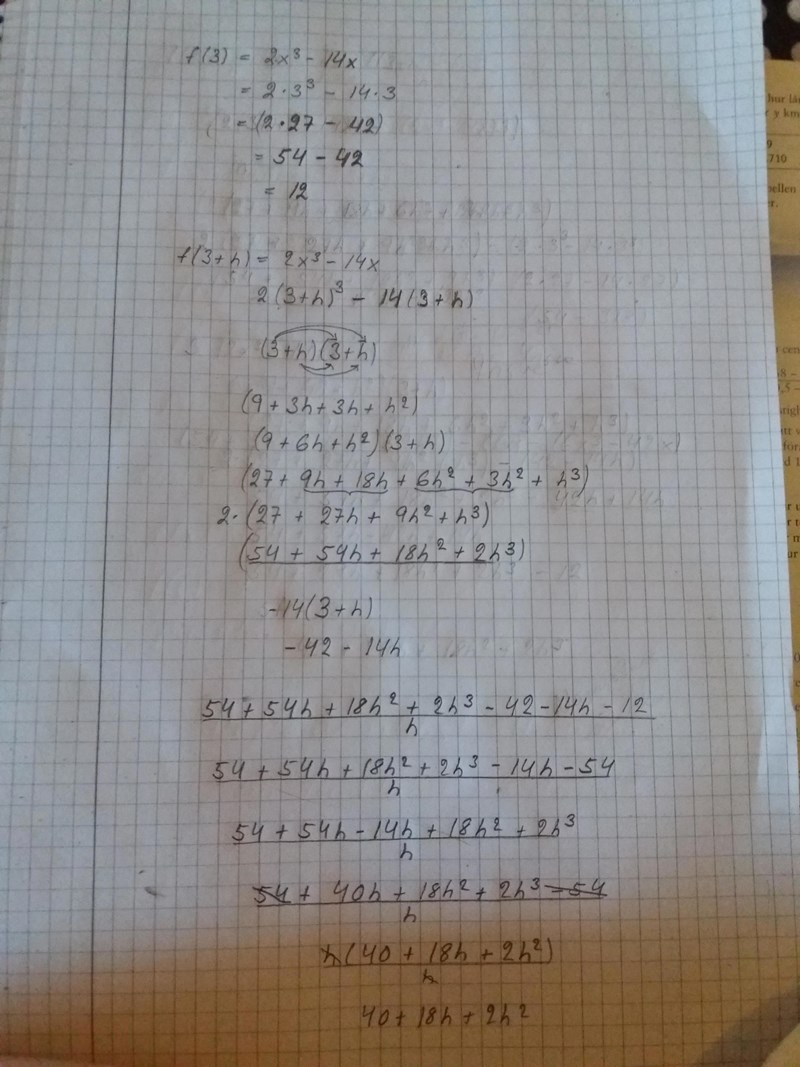 f(3) = 2x³ - 14x
= 2·3³ - 14·3
= (2·27 - 42)
= 54 - 42
= 12
f(3+h) = 2x³ - 14x
2(3+h)³ - 14(3+h)
(3+h)(3+h)
(9 + 3h + 3h + h²)
(9 + 6h + h²)(3+h)
(27 + 9h + 18h + 6h² + 3h² + h³)
2·(27 + 27h + 9h² + h³)
(54 + 54h + 18h² + 2h³)
-14(3+h)
-42 - 14h
54 + 54h + 18h² + 2h³ - 42 - 14h - 12
h
54 + 54h + 18h² + 2h³ - 14h - 54
h
54 + 54h - 14h + 18h² + 2h³
h
54 + 40h + 18h² + 2h³ - 54
h
h(40 + 18h + 2h²)
h
40 + 18h + 2h²
hur
y km
9
710